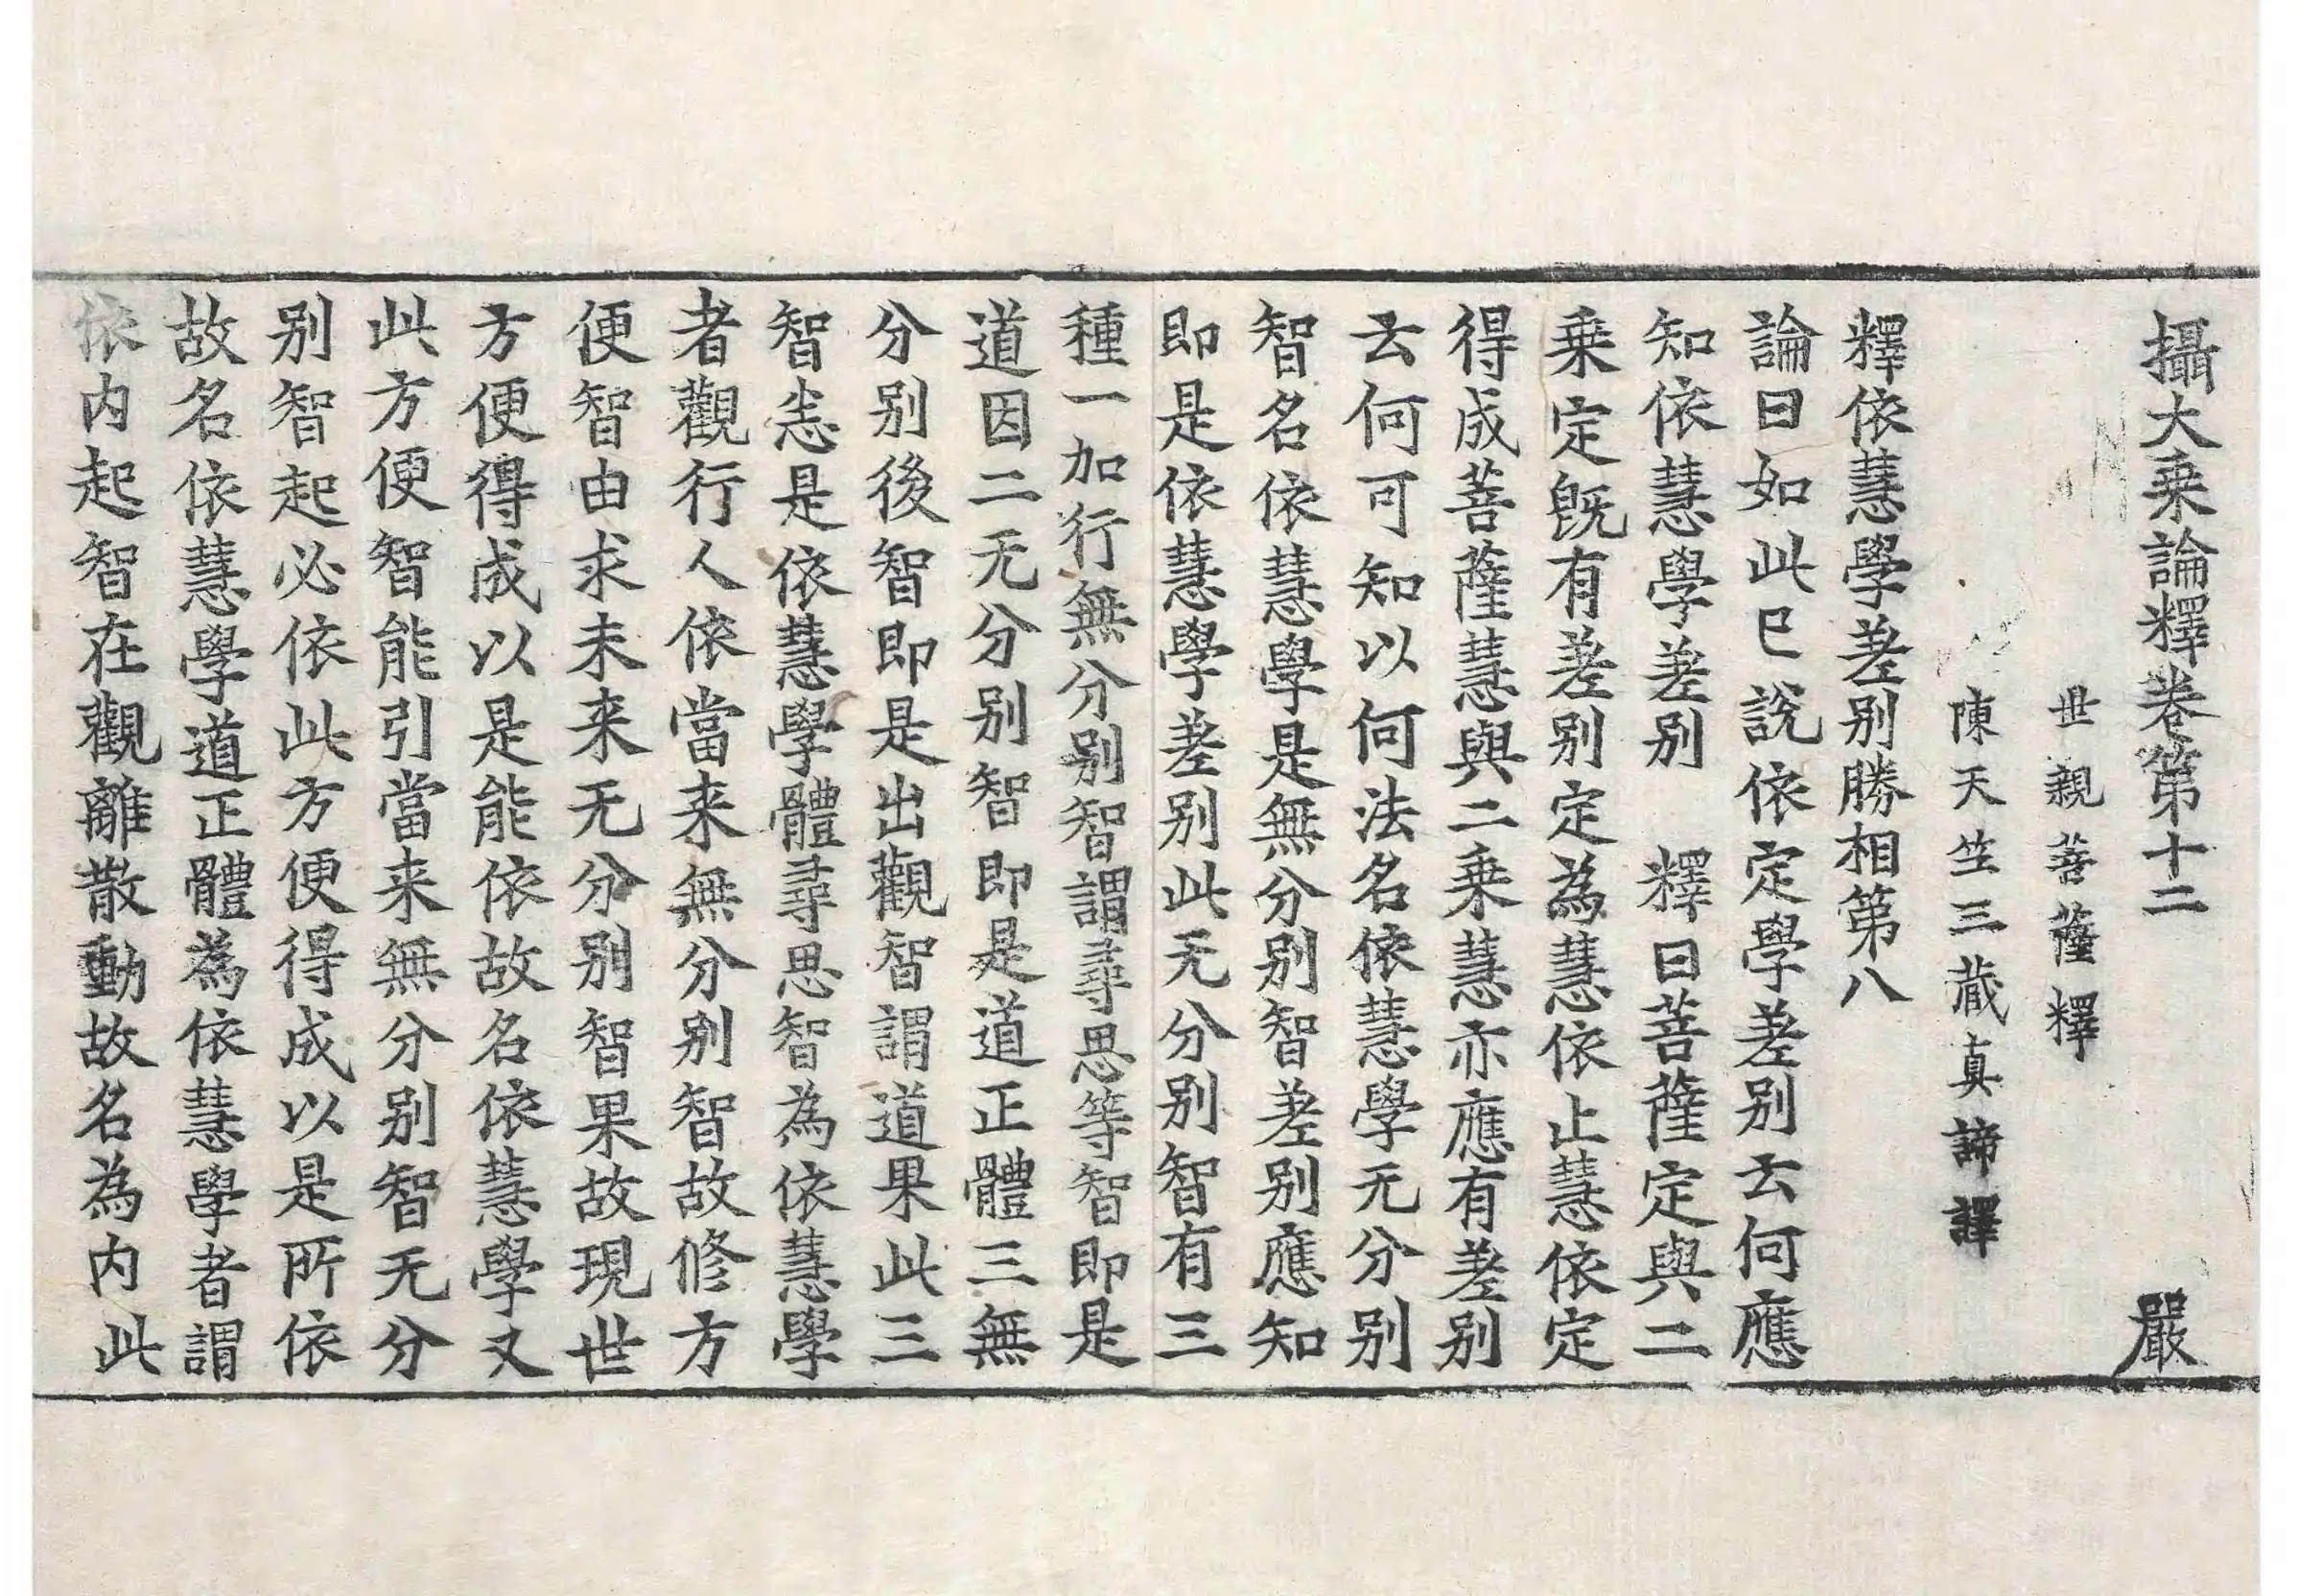 攝大乗論釋卷第十二 嚴
世親菩薩釋
陳天竺三藏真諦譯
釋依慧學差别勝相第八
論曰如此已說依定學差别云何應
知依慧學差别 釋曰菩薩定與二
乗定旣有差别定為慧依止慧依定
得成菩薩慧與二乗慧亦應有差别
云何可知以何法名依慧學无分别
智名依慧學是無分别智差别應知
即是依慧學差别此无分别智有三
種一加行無分别智謂尋思等智即是
道因二无分别智即是道正體三無
分别後智即是出觀智謂道果此三
智恙是依慧學體尋思智為依慧學
者觀行人依當来無分别智故修方
便智由求未来无分别智果故現世
方便得成以是能依故名依慧學又
此方便智能引當来無分别智无分
别智起必依此方便得成以是所依
故名依慧學道正體為依慧學者謂
依内起智在觀離散動故名為内此